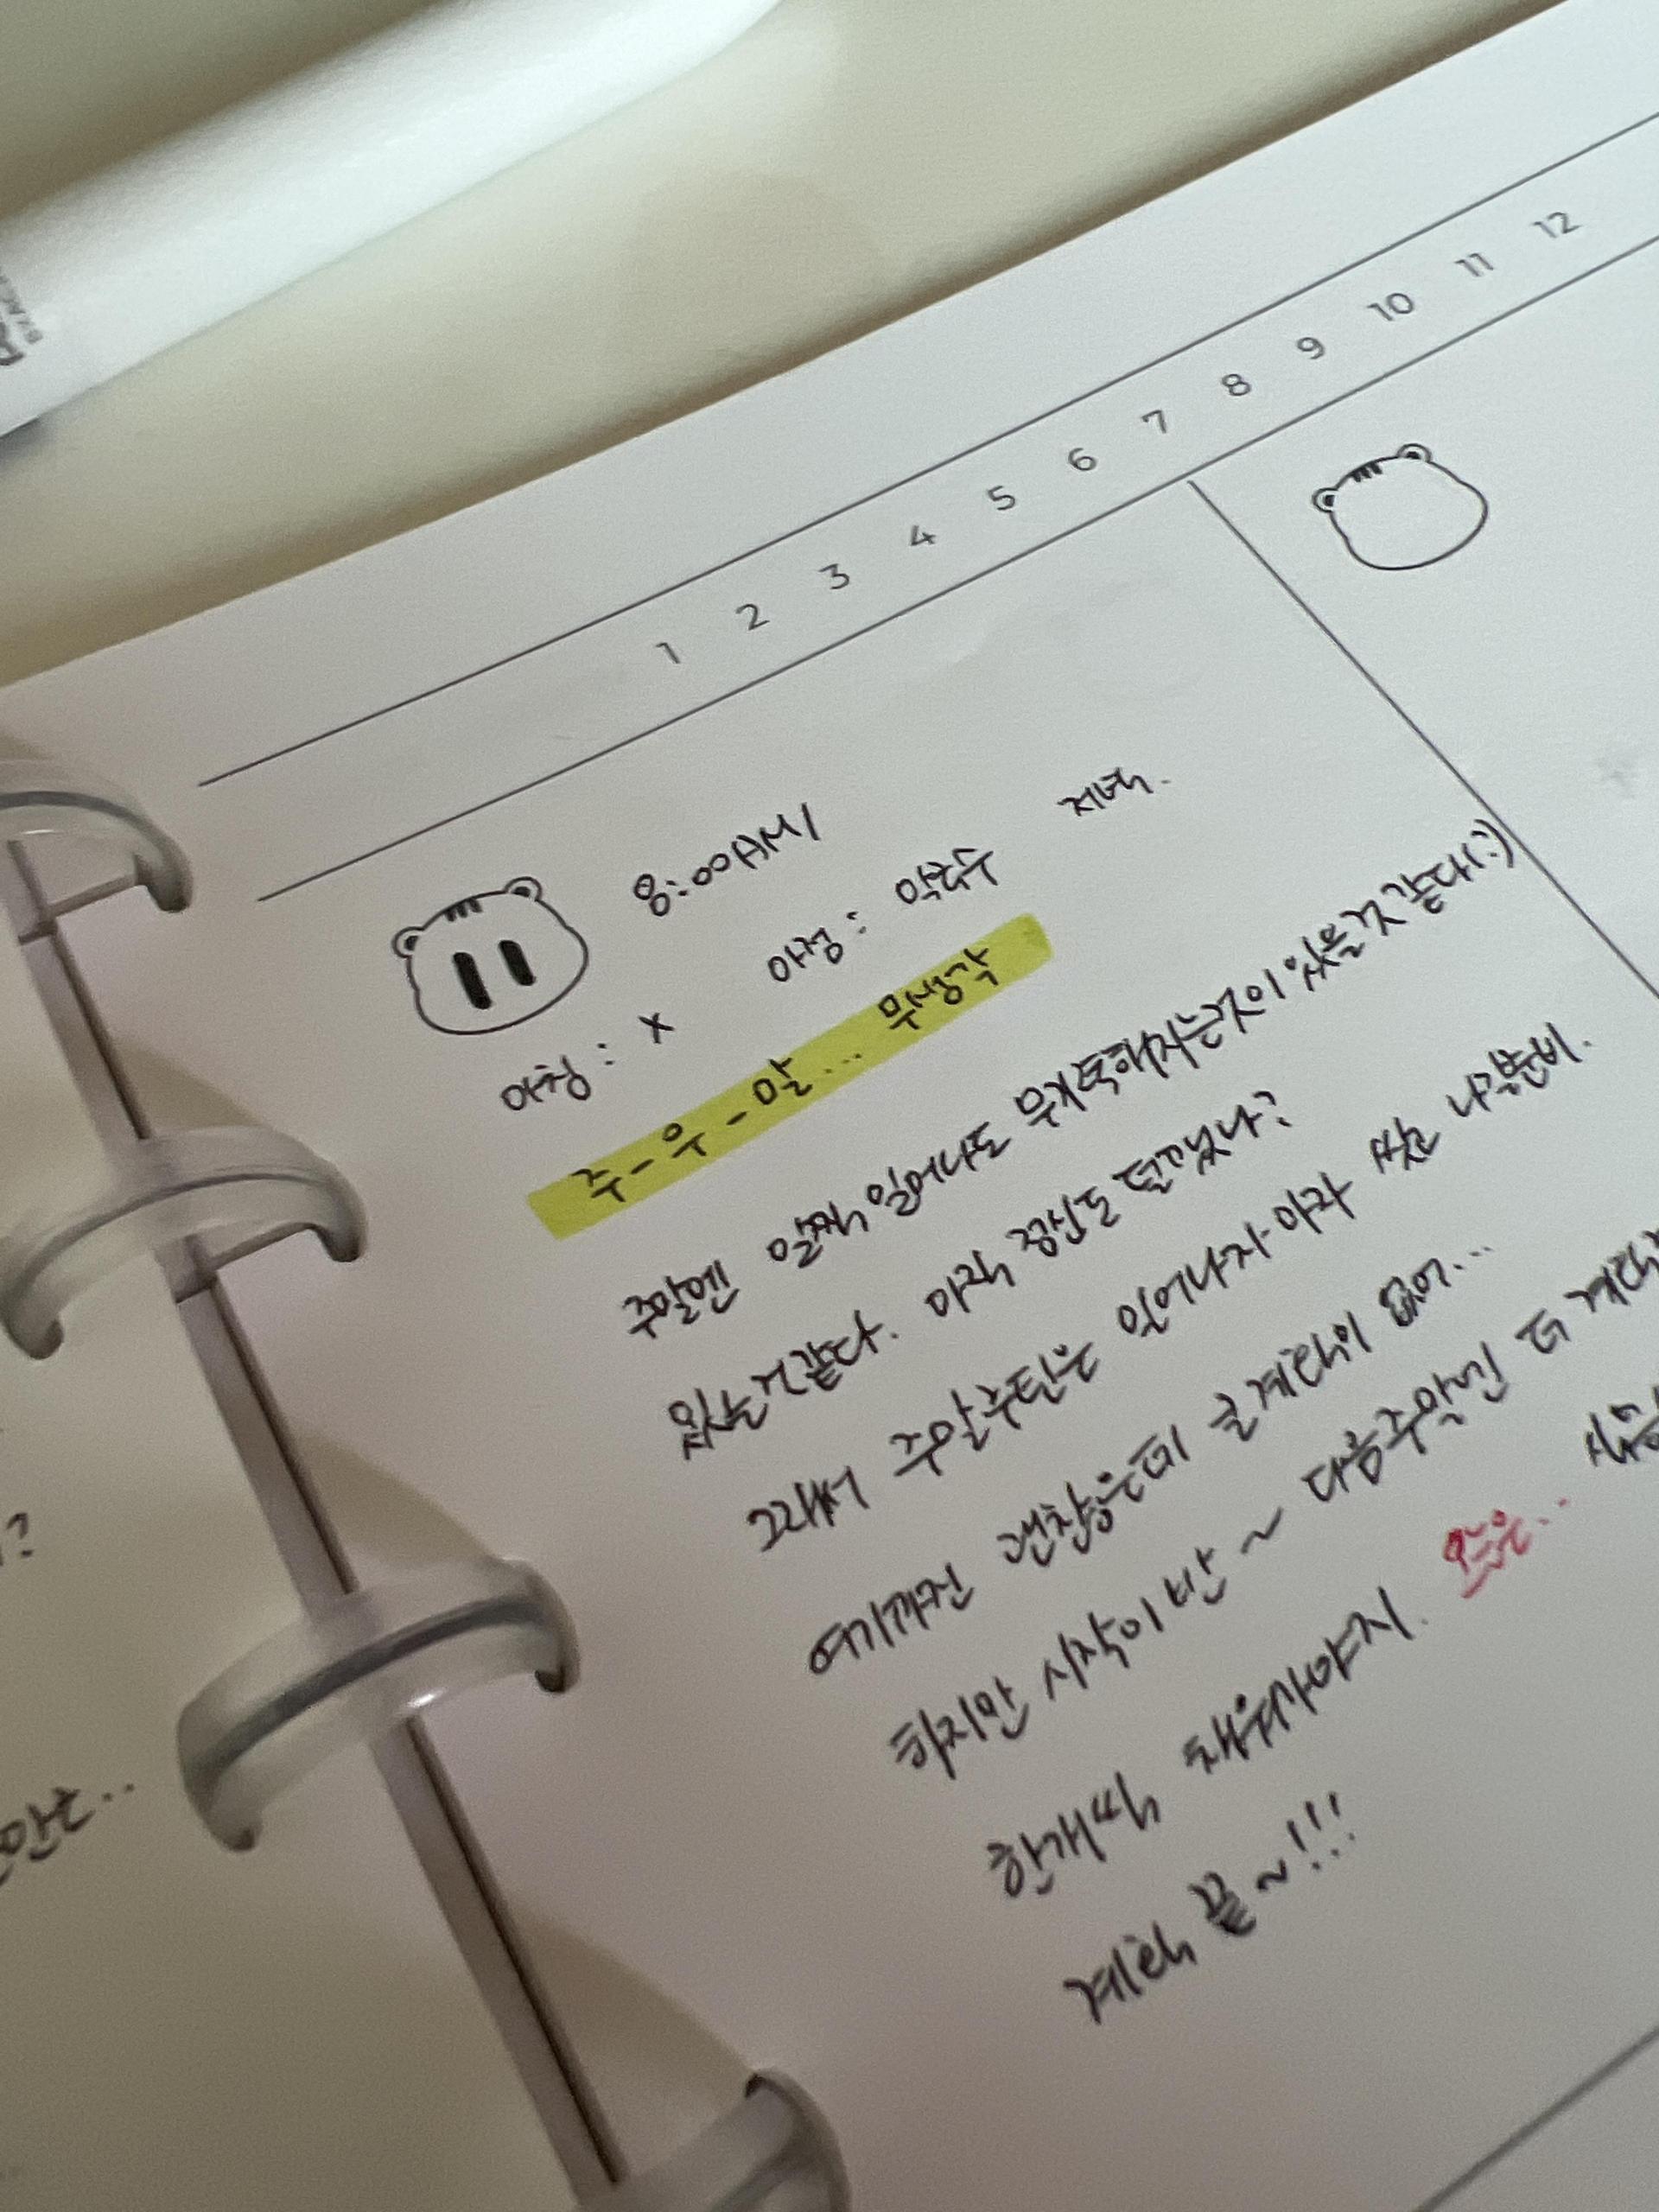 1 2 3 4 5 6 7 8 9 10 11 12
8:00AM
아침: x 아점: 저녁.
주-우-말... 무생각
주말엔 일찍 일어나도 무기력해지는것이 있을것 같다(?)
있는것같다. 아직 정신도 덜깼나?
그래서 주말루틴은 일어나자 마자 씻고 나갈준비.
여기까진 괜찮은데 그 계획이 없어...
하지만 시작이 반 ~ 다음주말엔 더
한개씩 채워가야지.
계획 끝~!!!